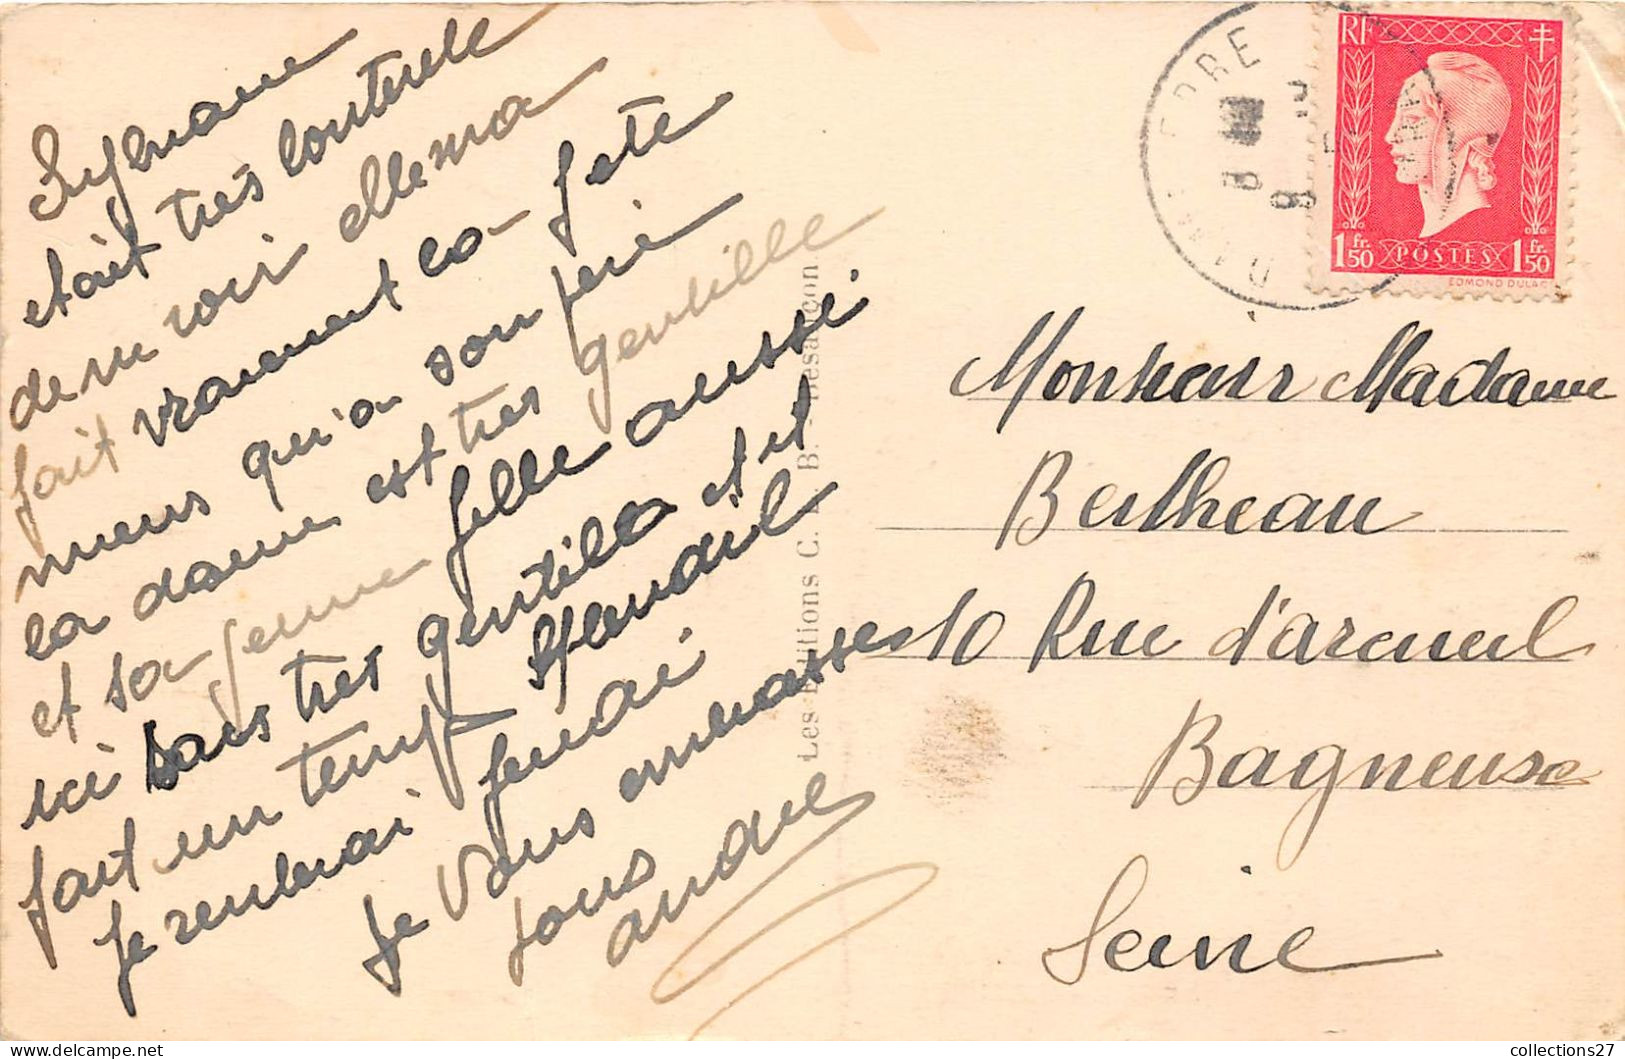 était très contente
de me voir elle ma
fait vraiment la fete
mieux qu'a son père
la dame est très gentille
et sa jeune fille aussi
ici sais très gentil et il
fait un temps
Je rentrerai jeudi
Je Vous embrasse
tous
André
Les Editions C. L. B. - Besançon
RF
1 fr. 50 POSTES 1 fr. 50
EDMOND DULAC
Monsieur Madame
Bertheau
10 Rue d'arcueil
Bagneuse
Seine
collections27